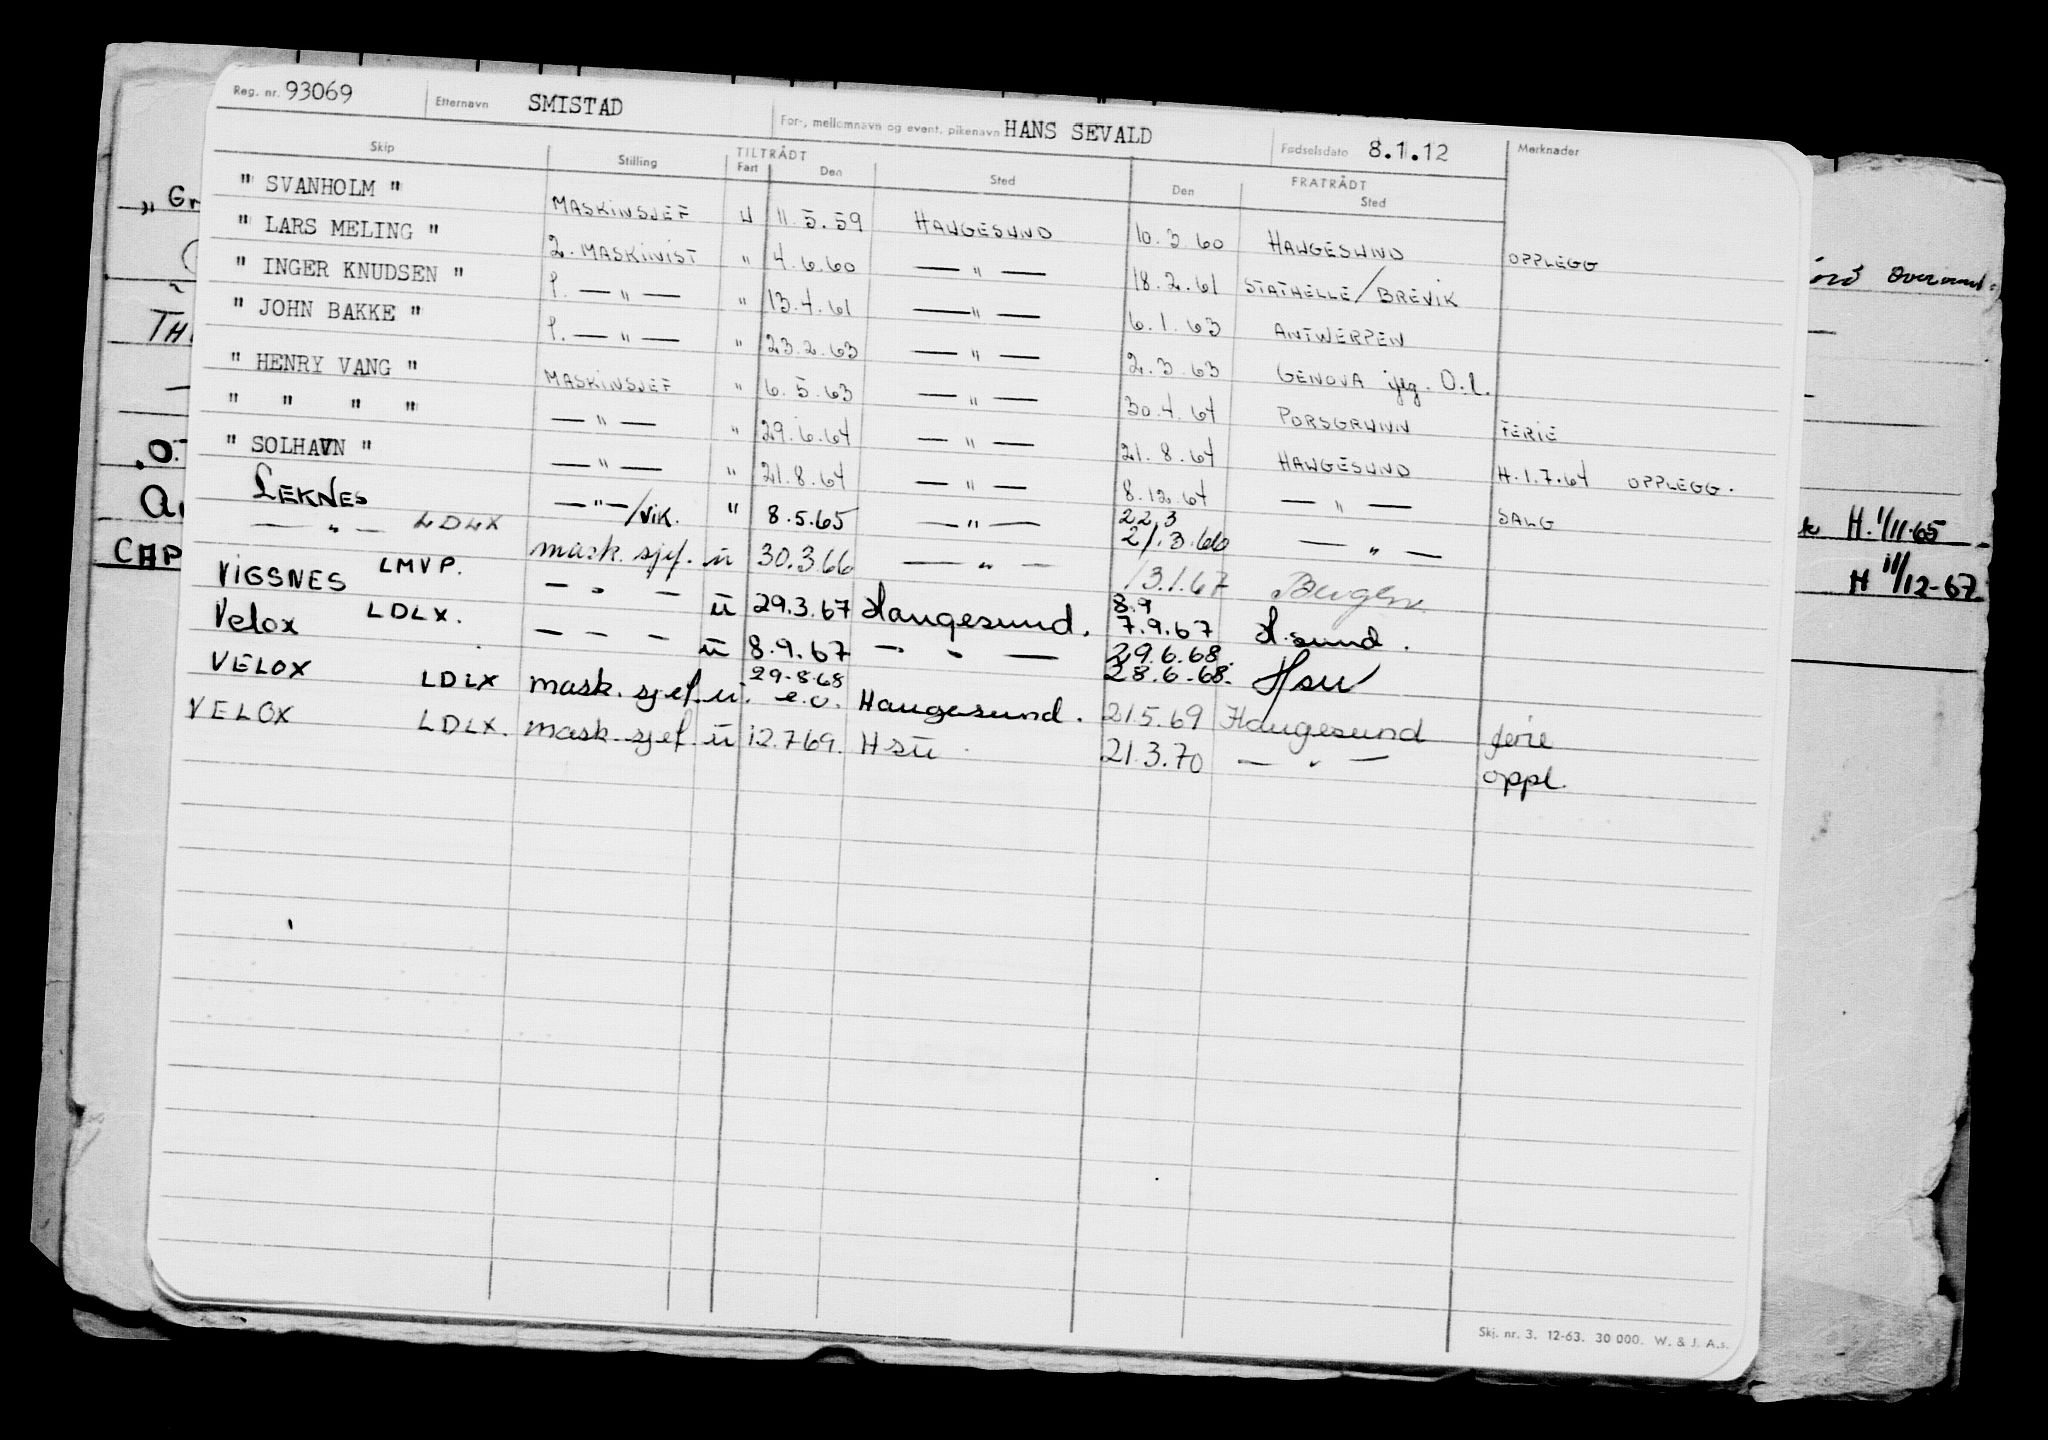 Reg. nr. 93069 Etternavn SMISTAD For-, mellomnavn og event. pikenavn HANS SEVALD Fødselsdato 8.1.12 Merknader
Skip Stilling TILTRÅDT Fart Den Sted FRATRÅDT Den Sted
" SVANHOLM " MASKINSJEF U 11.5.59 HAUGESUND 10.3.60 HAUGESUND OPPLEGG
" LARS MELING " 2. MASKINIST " 4.6.60 — " — 18.2.61 STATHELLE/BREVIK
" INGER KNUDSEN " 1. — " — " 13.4.61 — " — 6.1.63 ANTWERPEN
" JOHN BAKKE " 1. — " — " 23.2.63 — " — 2.3.63 GENOVA
" HENRY VANG " MASKINSJEF " 6.5.63 — " — 30.4.64 PORSGRUNN FERIE
" " " " — " — " 29.6.64 — " — 21.8.64 HAUGESUND H.1.7.64 OPPLEGG.
" SOLHAVN " — " — " 21.8.64 — " — 8.12.64 — " — SALG
LEKNES — " —/VIK. " 8.5.65 — " — 22.3 21.3.66 — " —
— " — LDLX mask. sjef. u 30.3.66 — " — 13.1.67 Bergen
VIGSNES LMVP. — " — u 29.3.67 Haugesund. 8.9 7.9.67 H.sund.
Velox LDLX. — — — u 8.9.67 — " — 29.6.68. 28.6.68. Hsu
VELOX LDLX mask. sjef. u. 29.8.68 e.o. Haugesund. 21.5.69 Haugesund ferie
VELOX LDLX. mask. sjef. u 12.769. Hsu 21.3.70 — " — oppl.
H. 1/11-65
H 11/12-67
CAP
Skj. nr. 3. 12-63. 30 000. W. & J. A.s.